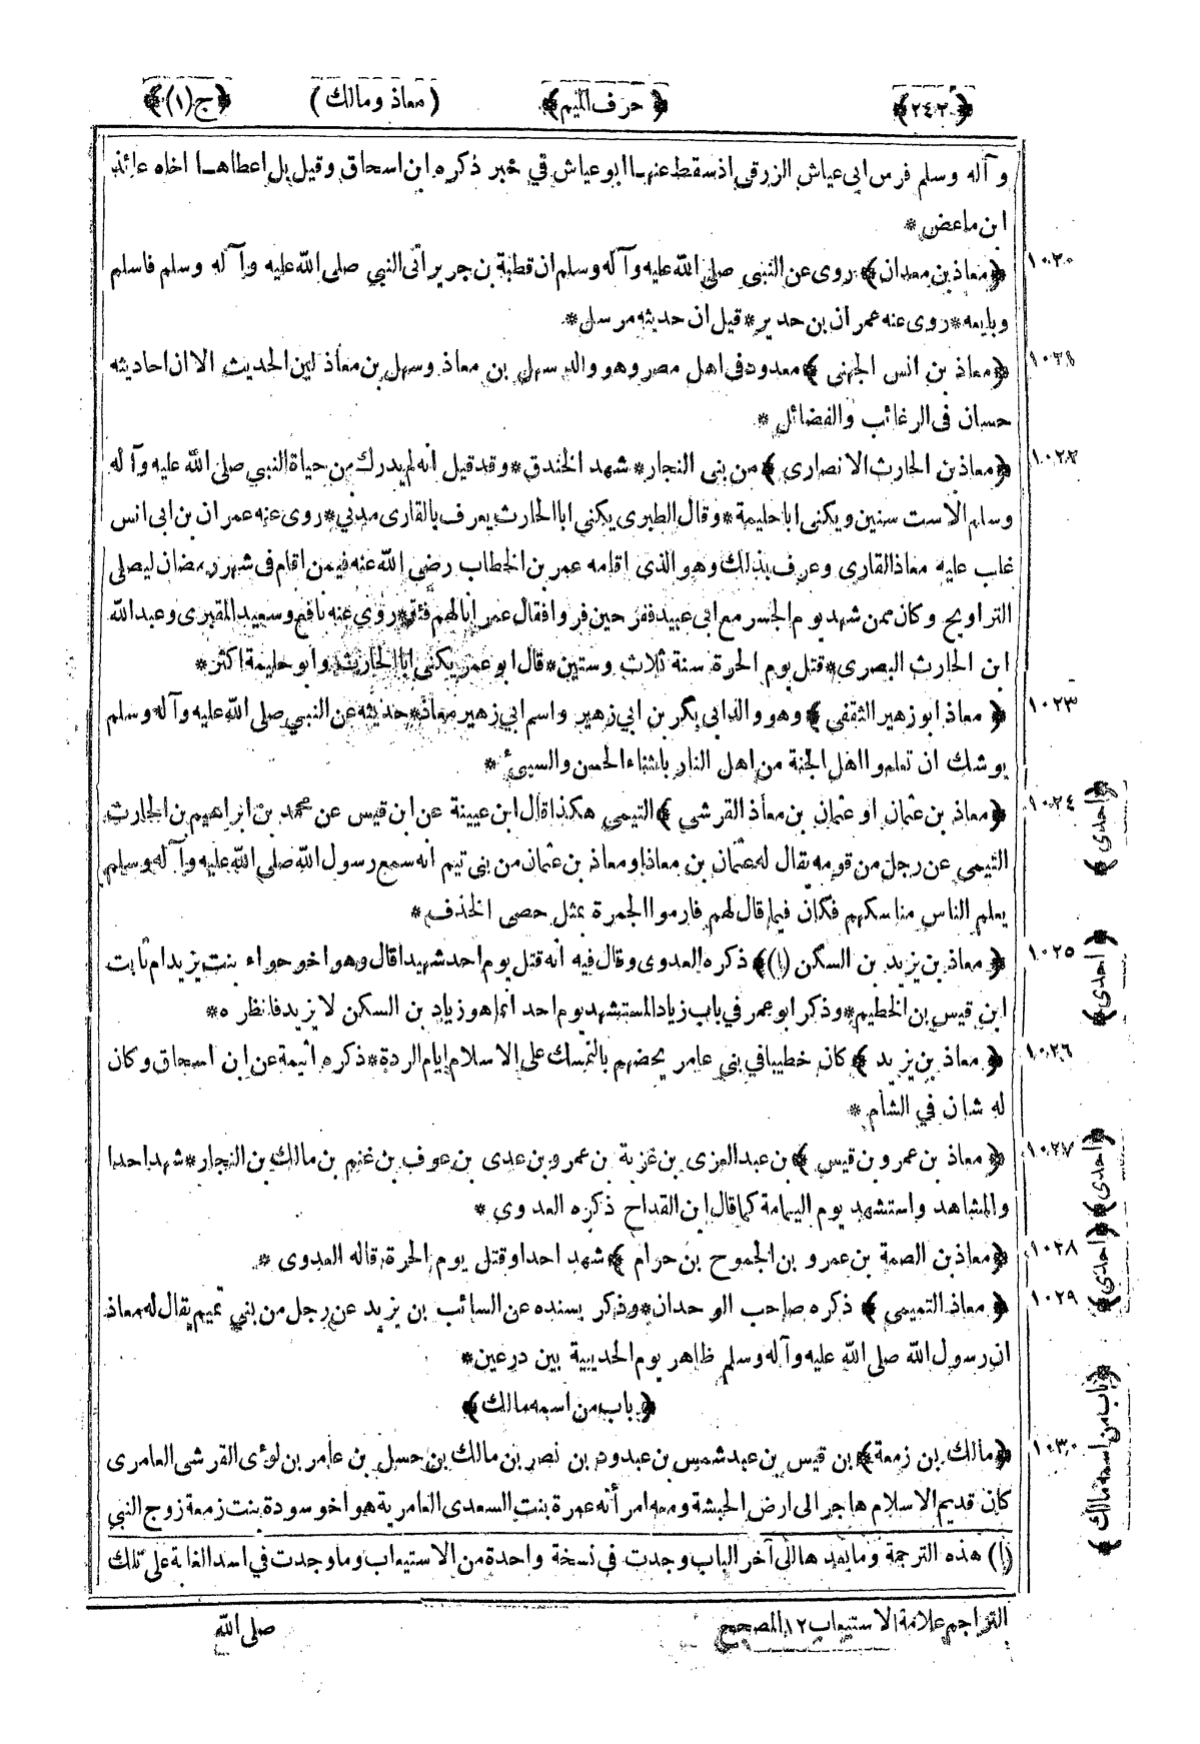 ﴿٢٤٢﴾ ﴿ حرف الميم﴾ (معاذ ومالك) ﴿ج(١)﴾
وآله وسلم فرس ابى عياش الزرقى اذ سقط عنهـا ابو عياش في خبر ذكره ابن اسحاق وقيل بل اعطاهـا اخاه عائذ
ابن ماعض *
١٠٢٠ ﴿معاذ بن معدان﴾ روى عن النبى صلى الله عليه وآله وسلم ان قطبة بن جرير اتى النبي صلى الله عليه وآله وسلم فاسلم
وبايعه*روى عنه عمران بن حدير*قيل ان حديثه مرسل*
١٠٢١ ﴿معاذ بن انس الجهنى ﴾ معدود فى اهل مصر وهو والد سهل بن معاذ وسهل بن معاذ لين الحديث الا ان احاديثه
حسان فى الرغائب والفضائل *
١٠٢٢ ﴿معاذ بن الحارث الانصارى ﴾ من بنى النجار* شهد الخندق*وقد قيل انه لم يدرك من حياة النبي صلى الله عليه وآله
وسلم الا ست سنين ويكنى ابا حليمة*وقال الطبرى يكنى ابا الحارث يعرف بالقارى مدني*روى عنه عمران بن ابى انس
غلب عليه معاذ القارى وعرف بذلك وهو الذى اقامه عمر بن الخطاب رضى الله عنه فيمن اقام فى شهر رمضان ليصلى
التراويح وكان ممن شهد يوم الجسر مع ابى عبيد ففر حين فروا فقال عمر انا لهم فئة*روى عنه نافع وسعيد المقبرى وعبد الله
ابن الحارث البصرى*قتل يوم الحرة سنة ثلاث وستين*قال ابو عمر يكنى ابا الحارث وابو حليمة اكثر*
١٠٢٣ ﴿ معاذ ابو زهير الثقفى ﴾ وهو والد ابى بكر بن ابي زهير واسم ابي زهير معاذ*حديثه عن النبي صلى الله عليه وآله وسلم
يوشك ان تعلموا اهل الجنة من اهل النار بالثناء الحسن والسيئ *
١٠٢٤ ﴿معاذ بن عثمان او عثمان بن معاذ القرشى ﴾ التيمى هكذا قال ابن عيينة عن ابن قيس عن محمد بن ابراهيم بن الحارث
التيمى عن رجل من قومه يقال له عثمان بن معاذ او معاذ بن عثمان من بنى تيم انه سمع رسول الله صلى الله عليه وآله وسلم
يعلم الناس مناسكهم فكان فيما قال لهم فارموا الجمرة بمثل حصى الخذف *
﴿احدى ﴾
١٠٢٥ ﴿ معاذ بن يزيد بن السكن (١)﴾ ذكره العدوى وقال فيه انه قتل يوم احد شهيدا قال وهو اخو حواء بنت يزيد ام ثابت
ابن قيس بن الخطيم*وذكر ابو عمر في باب زياد المستشهد يوم احد انما هو زياد بن السكن لا يزيد فانظره*
﴿ احدى﴾
١٠٢٦ ﴿ معاذ بن يزيد ﴾ كان خطيبا في بني عامر يحضهم بالتمسك على الاسلام ايام الردة*ذكره اثيمة عن ابن اسحاق وكان
له شان في الشام *
١٠٢٧ ﴿ معاذ بن عمرو بن قيس ﴾ بن عبد العزى بن غزية بن عمرو بن عدى بن عوف بن غنم بن مالك بن النجار*شهد احدا
والمشاهد واستشهد يوم اليمامة كما قال ابن القداح ذكره العدوى *
﴿احدى﴾
١٠٢٨ ﴿معاذ بن الصمة بن عمرو بن الجموح بن حرام ﴾ شهد احدا وقتل يوم الحرة قاله العدوى *
﴿احدى﴾
١٠٢٩ ﴿ معاذ التميمى ﴾ ذكره صاحب الوحدان*وذكر بسنده عن السائب بن يزيد عن رجل من بني تميم يقال له معاذ
ان رسول الله صلى الله عليه وآله وسلم ظاهر يوم الحديبية بين درعين*
﴿ باب من اسمه مالك﴾
﴿باب من اسمه مالك ﴾
١٠٣٠ ﴿مالك بن زمعة﴾ بن قيس بن عبد شمس بن عبدود بن نصر بن مالك بن حسل بن عامر بن لؤى القرشى العامرى
كان قديم الاسلام هاجر الى ارض الحبشة ومعه امرأته عمرة بنت السعدى العامرية هو اخو سودة بنت زمعة زوج النبي
(١) هذه الترجمة وما بعدها الى آخر الباب وجدت فى نسخة واحدة من الاستيعاب وما وجدت في اسد الغابة على تلك
التراجم علامة الاستيعاب ١٢ المصحح صلى الله